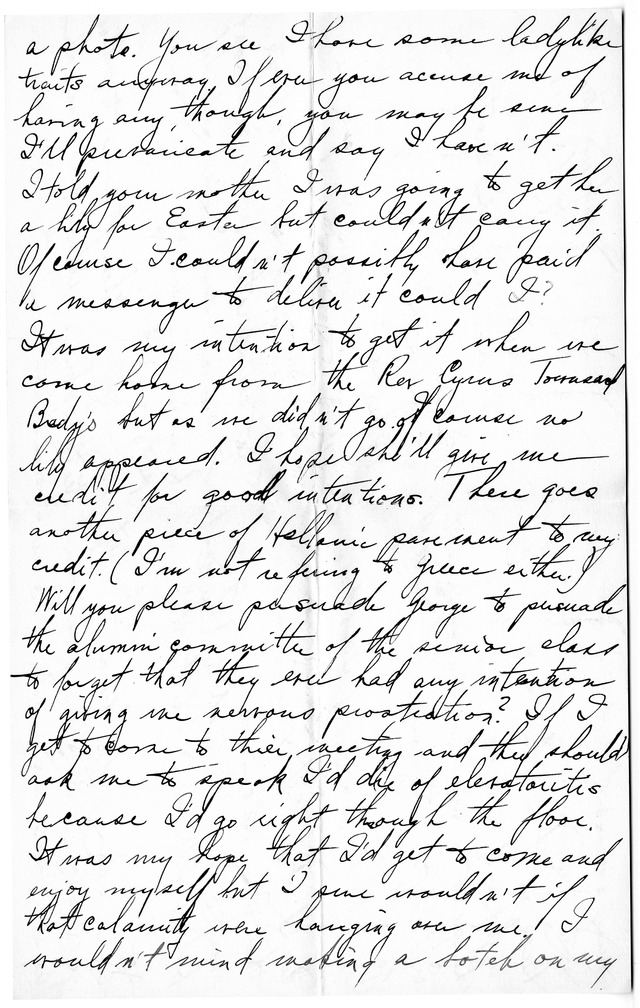 a photo. You see I have some ladylike
traits anyway. If ever you accuse me of
having any, though, you may be sure
I'll prevaricate and say I haven't.
I told your mother I was going to get her
a lily for Easter but couldn't carry it.
Of course I couldn't possibly have paid
a messenger to deliver it could I?
It was my intention to get it when we
come home from the Rev Cyrus Townsend
Brady's but as we didn't go, of course no
lily appeared. I hope she'll give me
credit for good intentions. There goes
another piece of Hellanic pavement to my
credit. (I'm not refering to Greece either.)
Will you please persuade George to persuade
the alumni committee of the senior class
to forget that they ever had any intention
of giving me nervous prostration? If I
get to come to thier meeting and they should
ask me to speak I'd die of elevatoritis
because I'd go right through the floor.
It was my hope that I'd get to come and
enjoy myself but I sure wouldn't if
that calamity were hanging over me. I
wouldn't mind making a botch on my